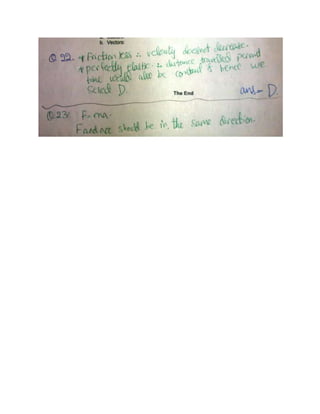 b. Vectors
Q 22. * Frictionless ∴ velocity doesnot decrease.
* perfectly elastic ∴ distance travelled period
time would also be constant & hence we
Select D. ans - D.
The End
Q 23. F = ma.
F and acc should be in the same direction.